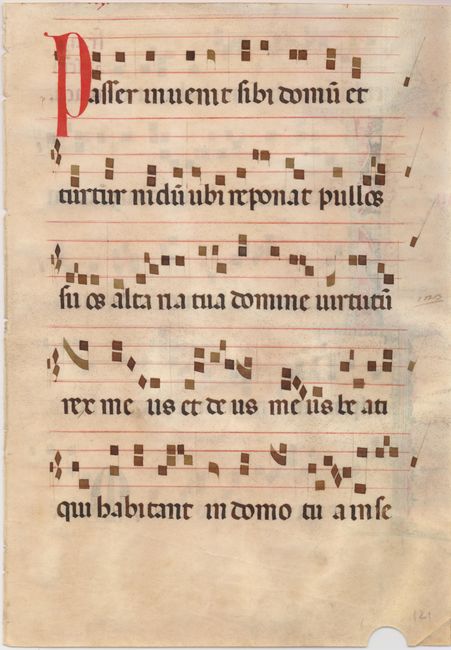 Passer inuenit sibi domū et
turtur nidū ubi reponat pullos
su os alta ria tua domine uirtutū
rex me us et de us me us be ati
qui habitant in domo tu a in se
121